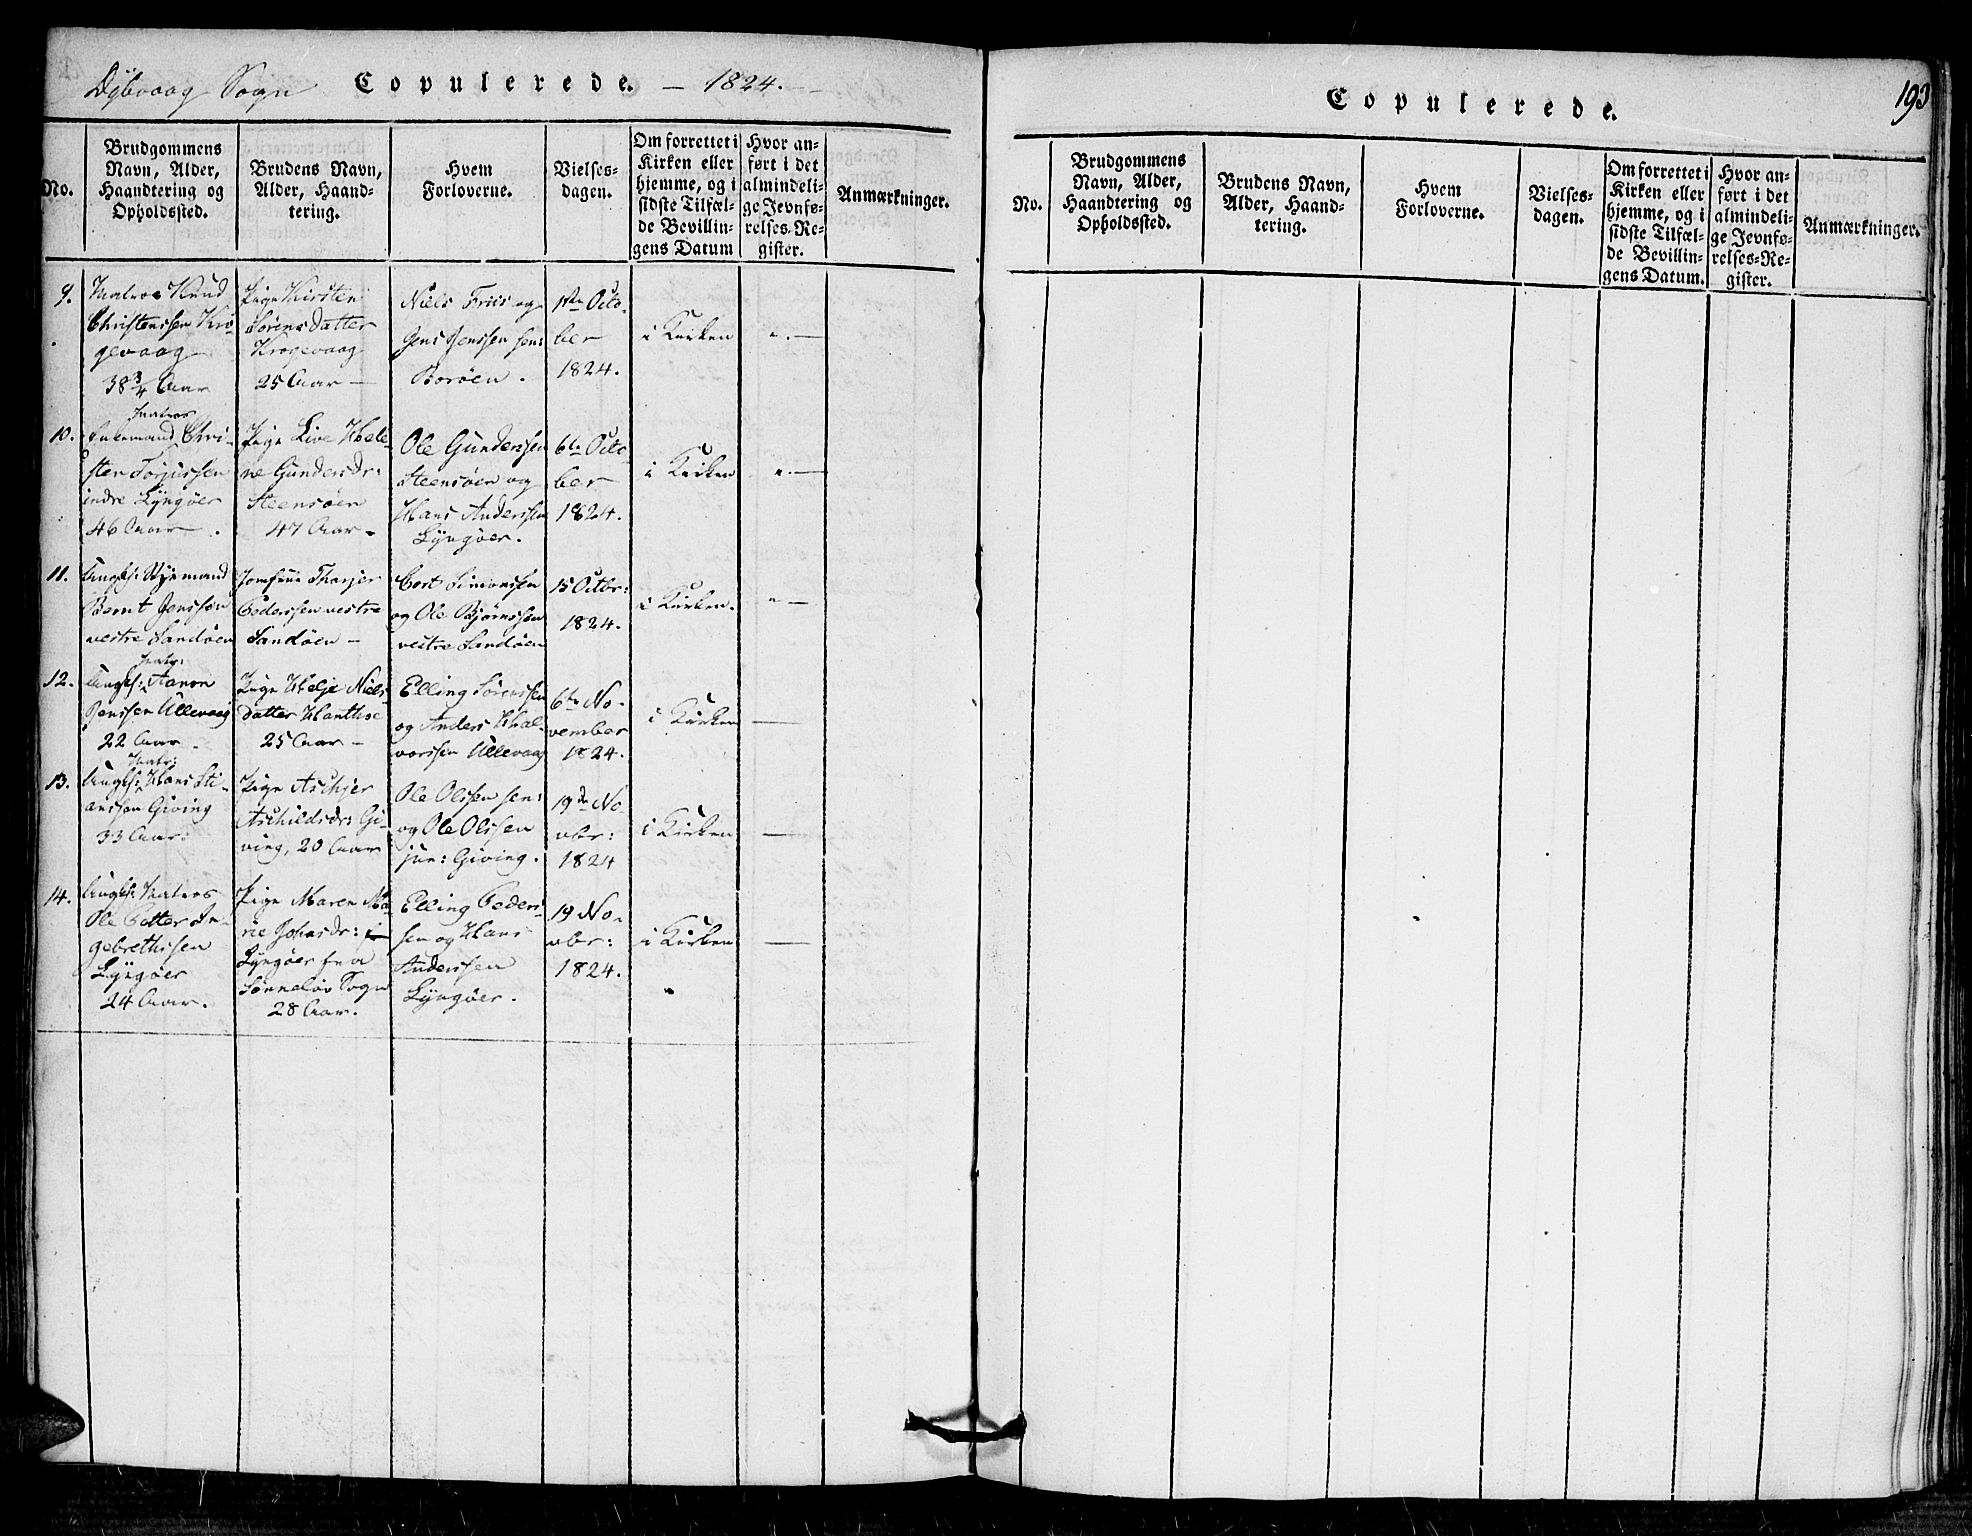 Dybvaag Sogn Copulerede. — 1824.
No.
Brudgommens
Navn, Alder,
Haandtering og
Opholdssted.
Brudens Navn,
Alder, Haand-
tering.
Hvem
Forloverne.
Vielses-
dagen.
Om forrettet i
Kirken eller
hjemme, og i
sidste Tilfæl-
de Bevillin-
gens Datum
Hvor an-
ført i det
almindeli-
ge Jevnfø-
relses-Re-
gister.
Anmærkninger.
9.
Matros Knud
Christenssen Kro-
gevaag
38 3/4 Aar
Pige Kirsten
Sørensdatter
Krogevaag
25 Aar —
Niels Friis og
Jens Jenssen sen:
Borøen.
1ste Octo-
ber
1824.
i Kirken
10.
Matros
Enkemand Chri-
sten Torjussen
indre Lyngøer
46 Aar —.
Pige Live Hele-
ne Gundersdr:
Steensøen
47 Aar.
Ole Gundersen
Steensøen og
Hans Anderssen
Lyngøer.
6te Octo-
ber
1824.
i Kirken
11.
Ungk: Styrmand
Bernt Jenssen
vestre Sandøen
Jomfrue Thorjer
Pederssen vestre
Sandøen —
Cort Simonssen
og Ole Bjørnssen
vestre Sandøen
15 Octbr:
1824.
i Kirken.
12.
Matr:
Ungk: Aanon
Jenssen Ullevaag
22 Aar.
Pige Helje Niels-
datter Hanthoe
25 Aar —
Elling Sørenssen
og Anders Hal-
vorssen Ullevaag
6te No-
vember
1824.
i Kirken
13.
Matr:
Ungk: Hans Sti-
anssen Giving
33 Aar:
Pige Aschjer
Aschildsdr: Gi-
ving, 20 Aar
Ole Olssen sen:
og Ole Olssen
jun: Giving.
19de No-
vbr:
1824
i Kirken
14.
Ungk: Matros
Ole Petter In-
gebrethssen
Lyngøer
24 Aar.
Pige Maren Ma-
rie Johnsdr:
Lyngøer fra
Sønneløv Sogn
28 Aar.
Elling Peders-
sen og Hans
Anderssen
Lyngøer.
19 No-
vbr:
1824.
i Kirken
Copulerede.
193
No.
Brudgommens
Navn, Alder,
Haandtering og
Opholdssted.
Brudens Navn,
Alder, Haand-
tering.
Hvem
Forloverne.
Vielses-
dagen.
Om forrettet i
Kirken eller
hjemme, og i
sidste Tilfæl-
de Bevillin-
gens Datum.
Hvor an-
ført i det
almindeli-
ge Jevnfø-
relses-Re-
gister.
Anmærkninger.